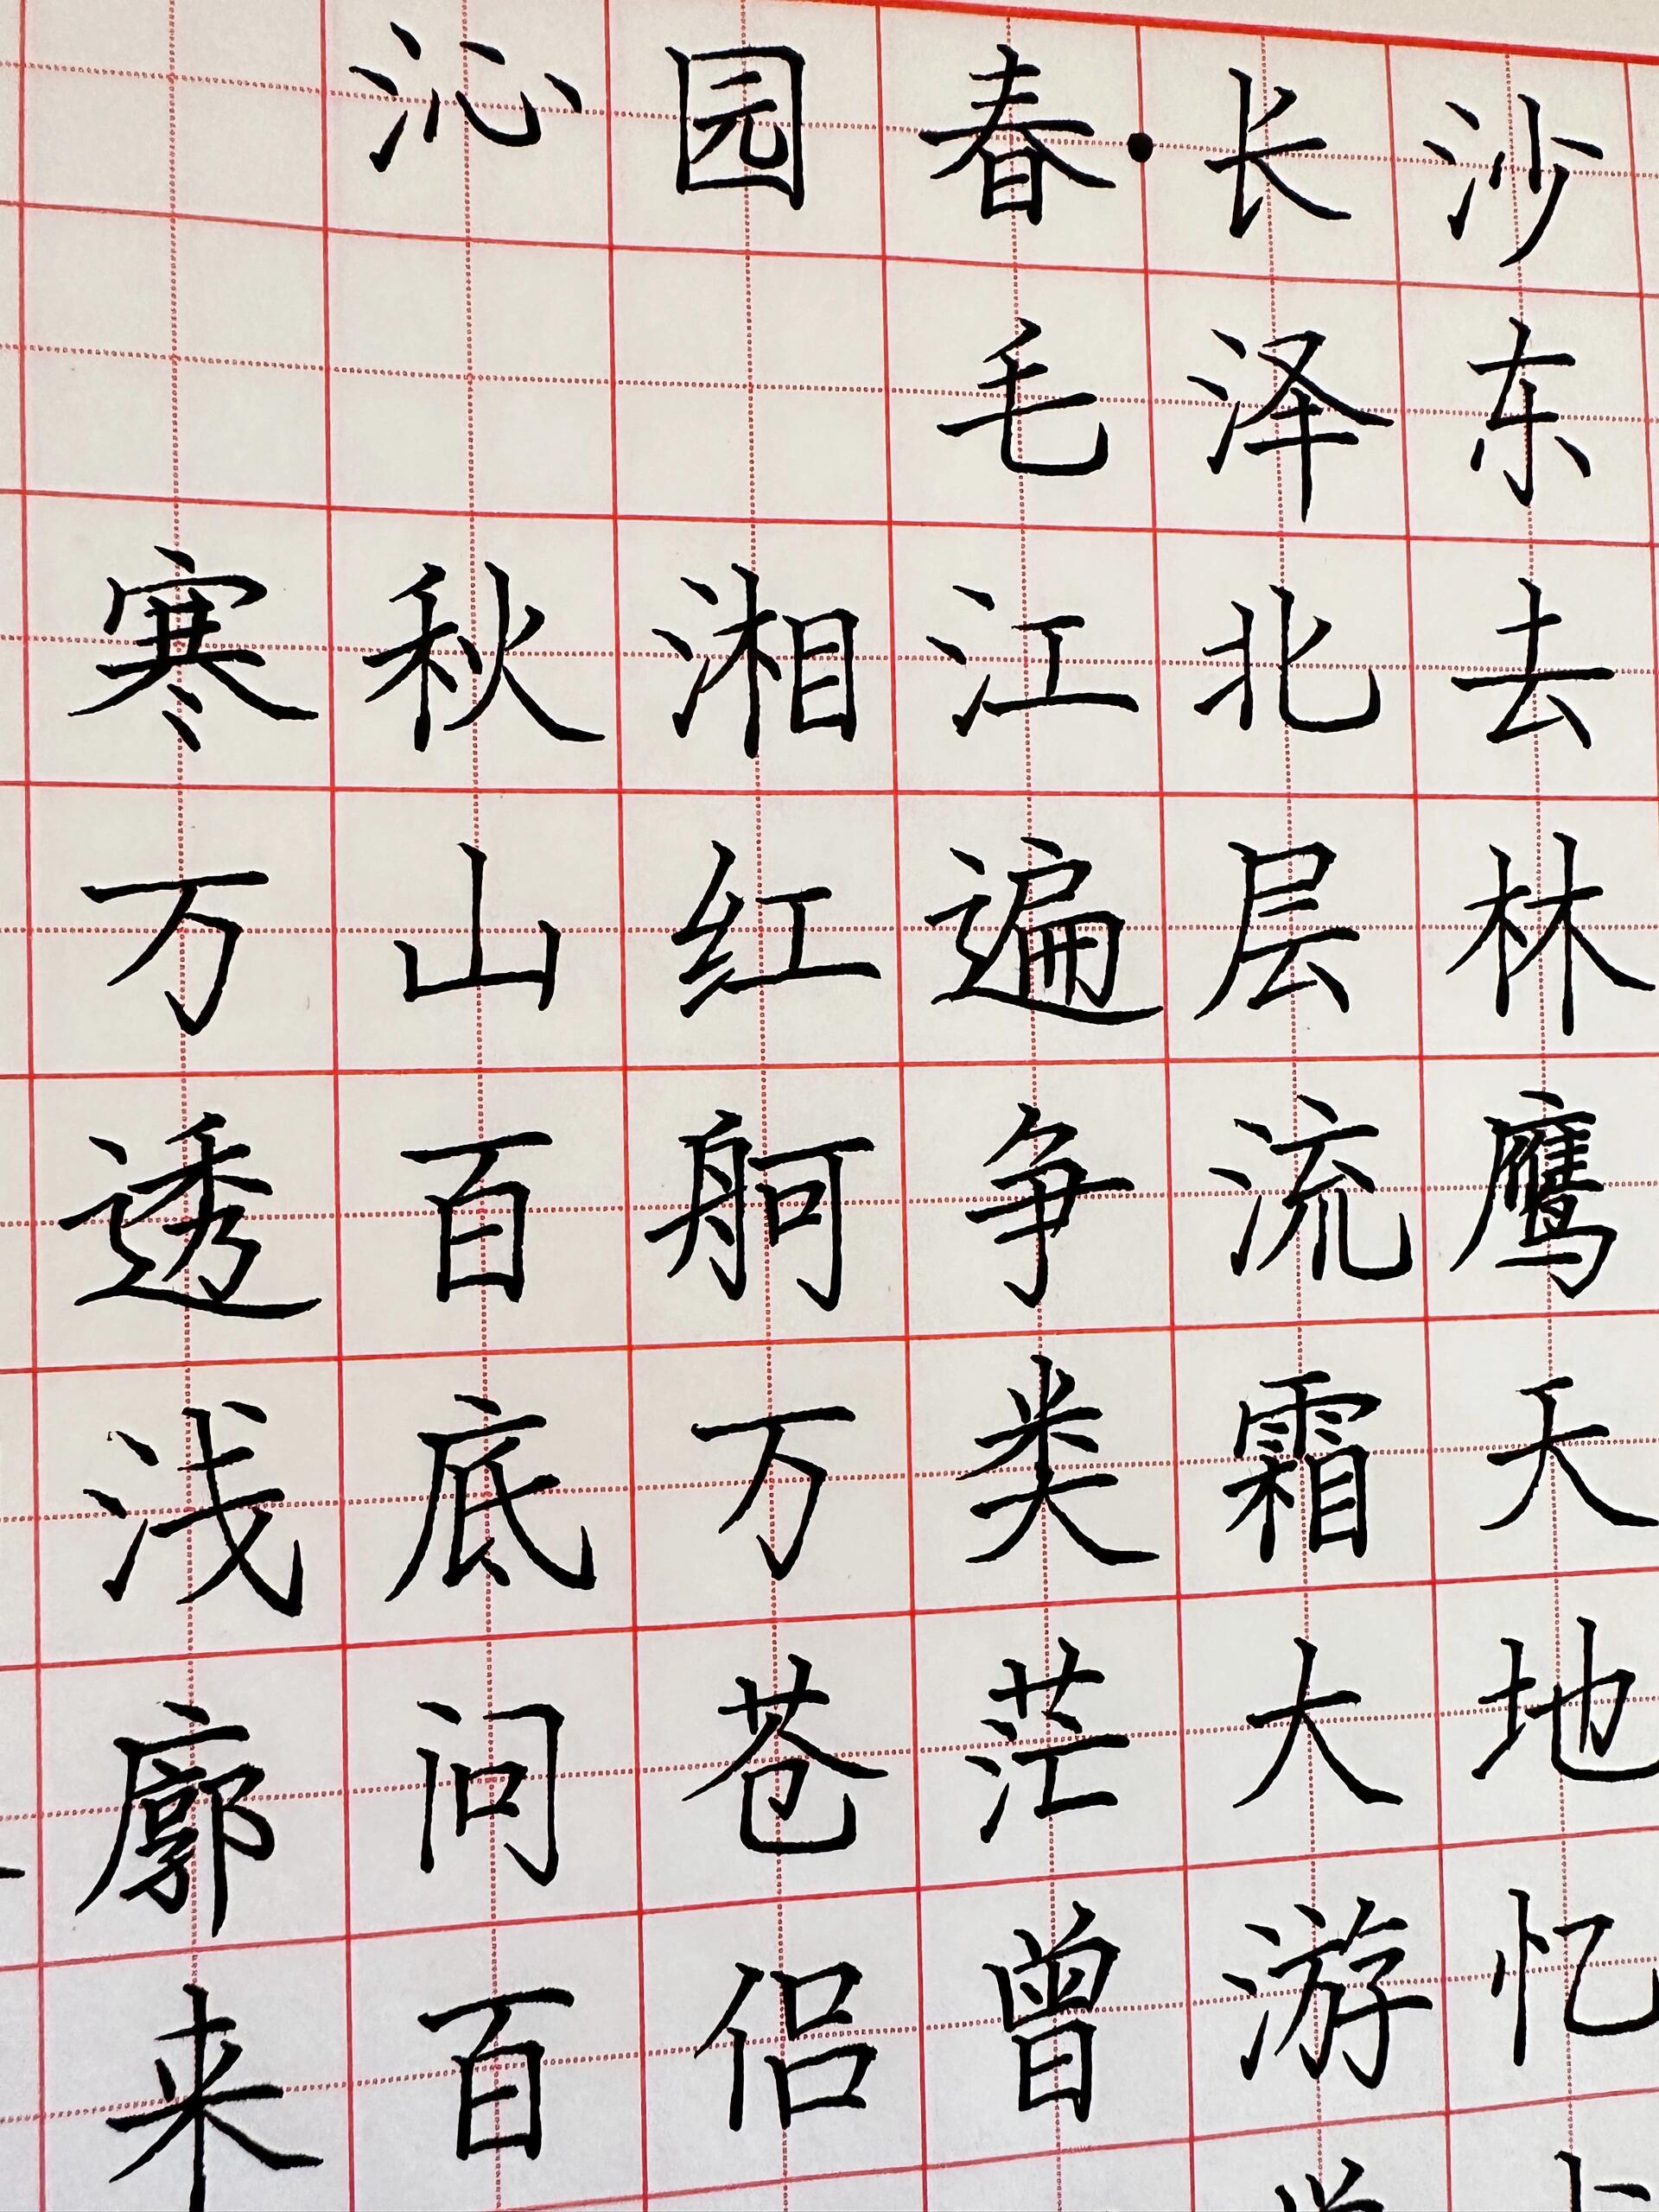 沁园春·长沙
毛泽东
寒秋湘江北去
万山红遍层林
透百舸争流鹰
浅底万类霜天
廓问苍茫大地
来百侣曾游忆